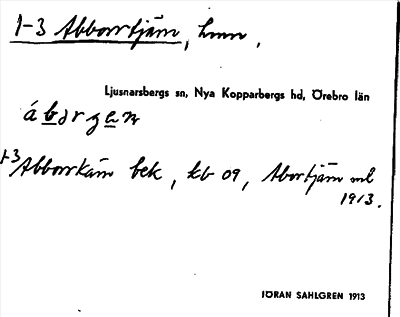 1-3 Abborrtjärn, hmn.
Ljusnarsbergs sn, Nya Kopparbergs hd, Örebro län
ábərgan
1-3 Abborrkärn bek, kb 09, Abortjärn ml
1913.
JÖRAN SAHLGREN 1913